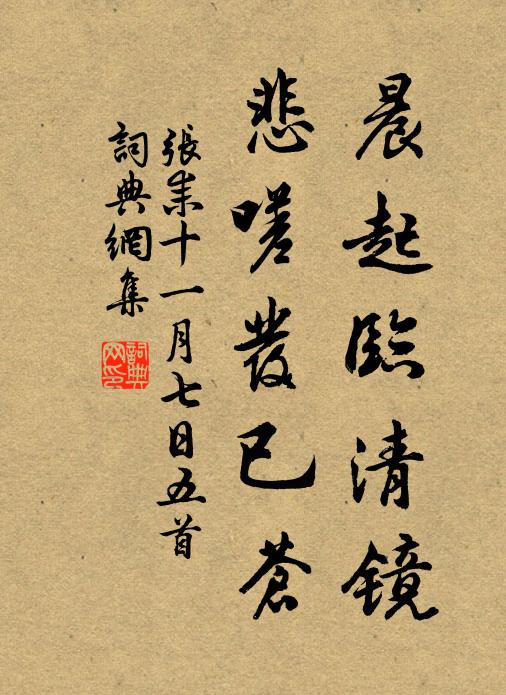 晨起臨清鏡
悲嗟發已蒼
張耒十一月七日五首
詞典網集
詞典
網印